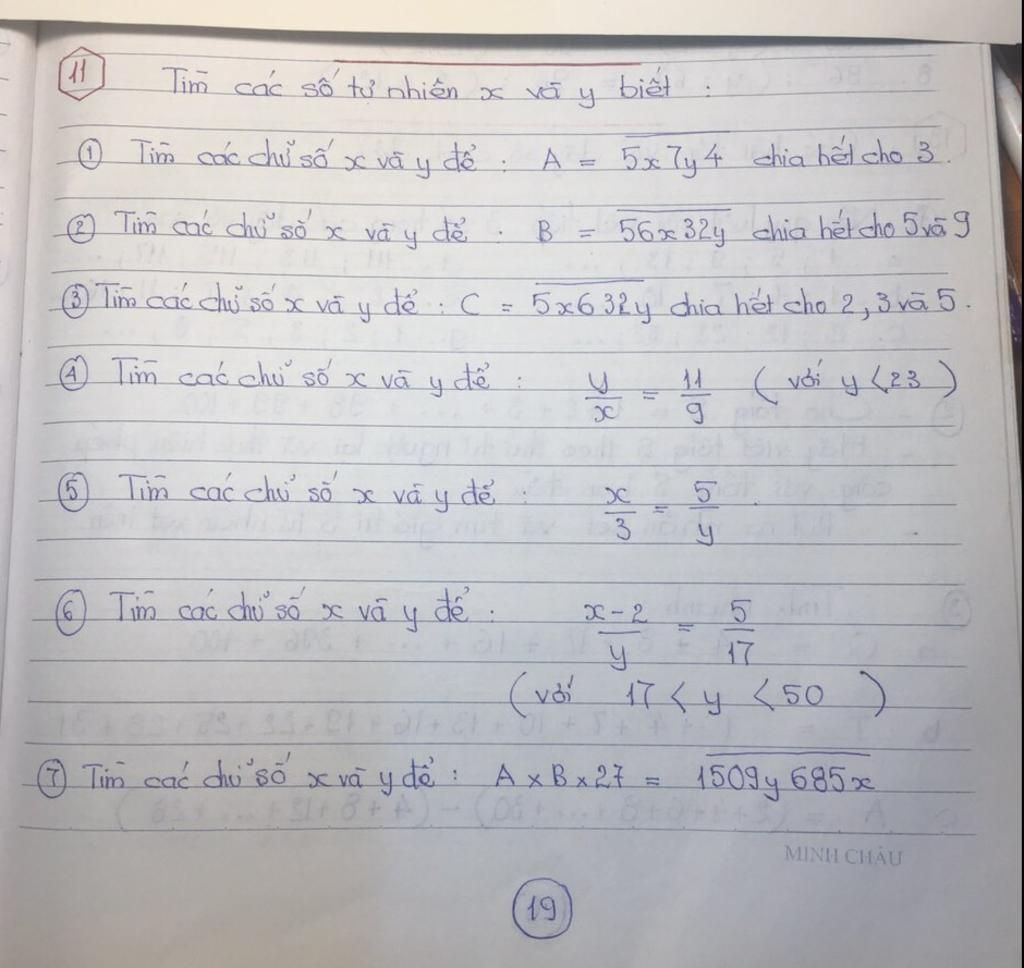 11 Tìm các số tự nhiên x và y biết :
① Tìm các chữ số x và y để : A = 5x7y4 chia hết cho 3.
② Tìm các chữ số x và y để : B = 56x32y chia hết cho 5 và 9
③ Tìm các chữ số x và y để : C = 5x632y chia hết cho 2, 3 và 5.
④ Tìm các chữ số x và y để : y/x = 11/9 ( với y < 23 )
⑤ Tìm các chữ số x và y để : x/3 = 5/y .
⑥ Tìm các chữ số x và y để : x-2/y = 5/17
( với 17 < y < 50 )
⑦ Tìm các chữ số x và y để : A × B × 27 = 1509y685x
MINH CHÂU
19